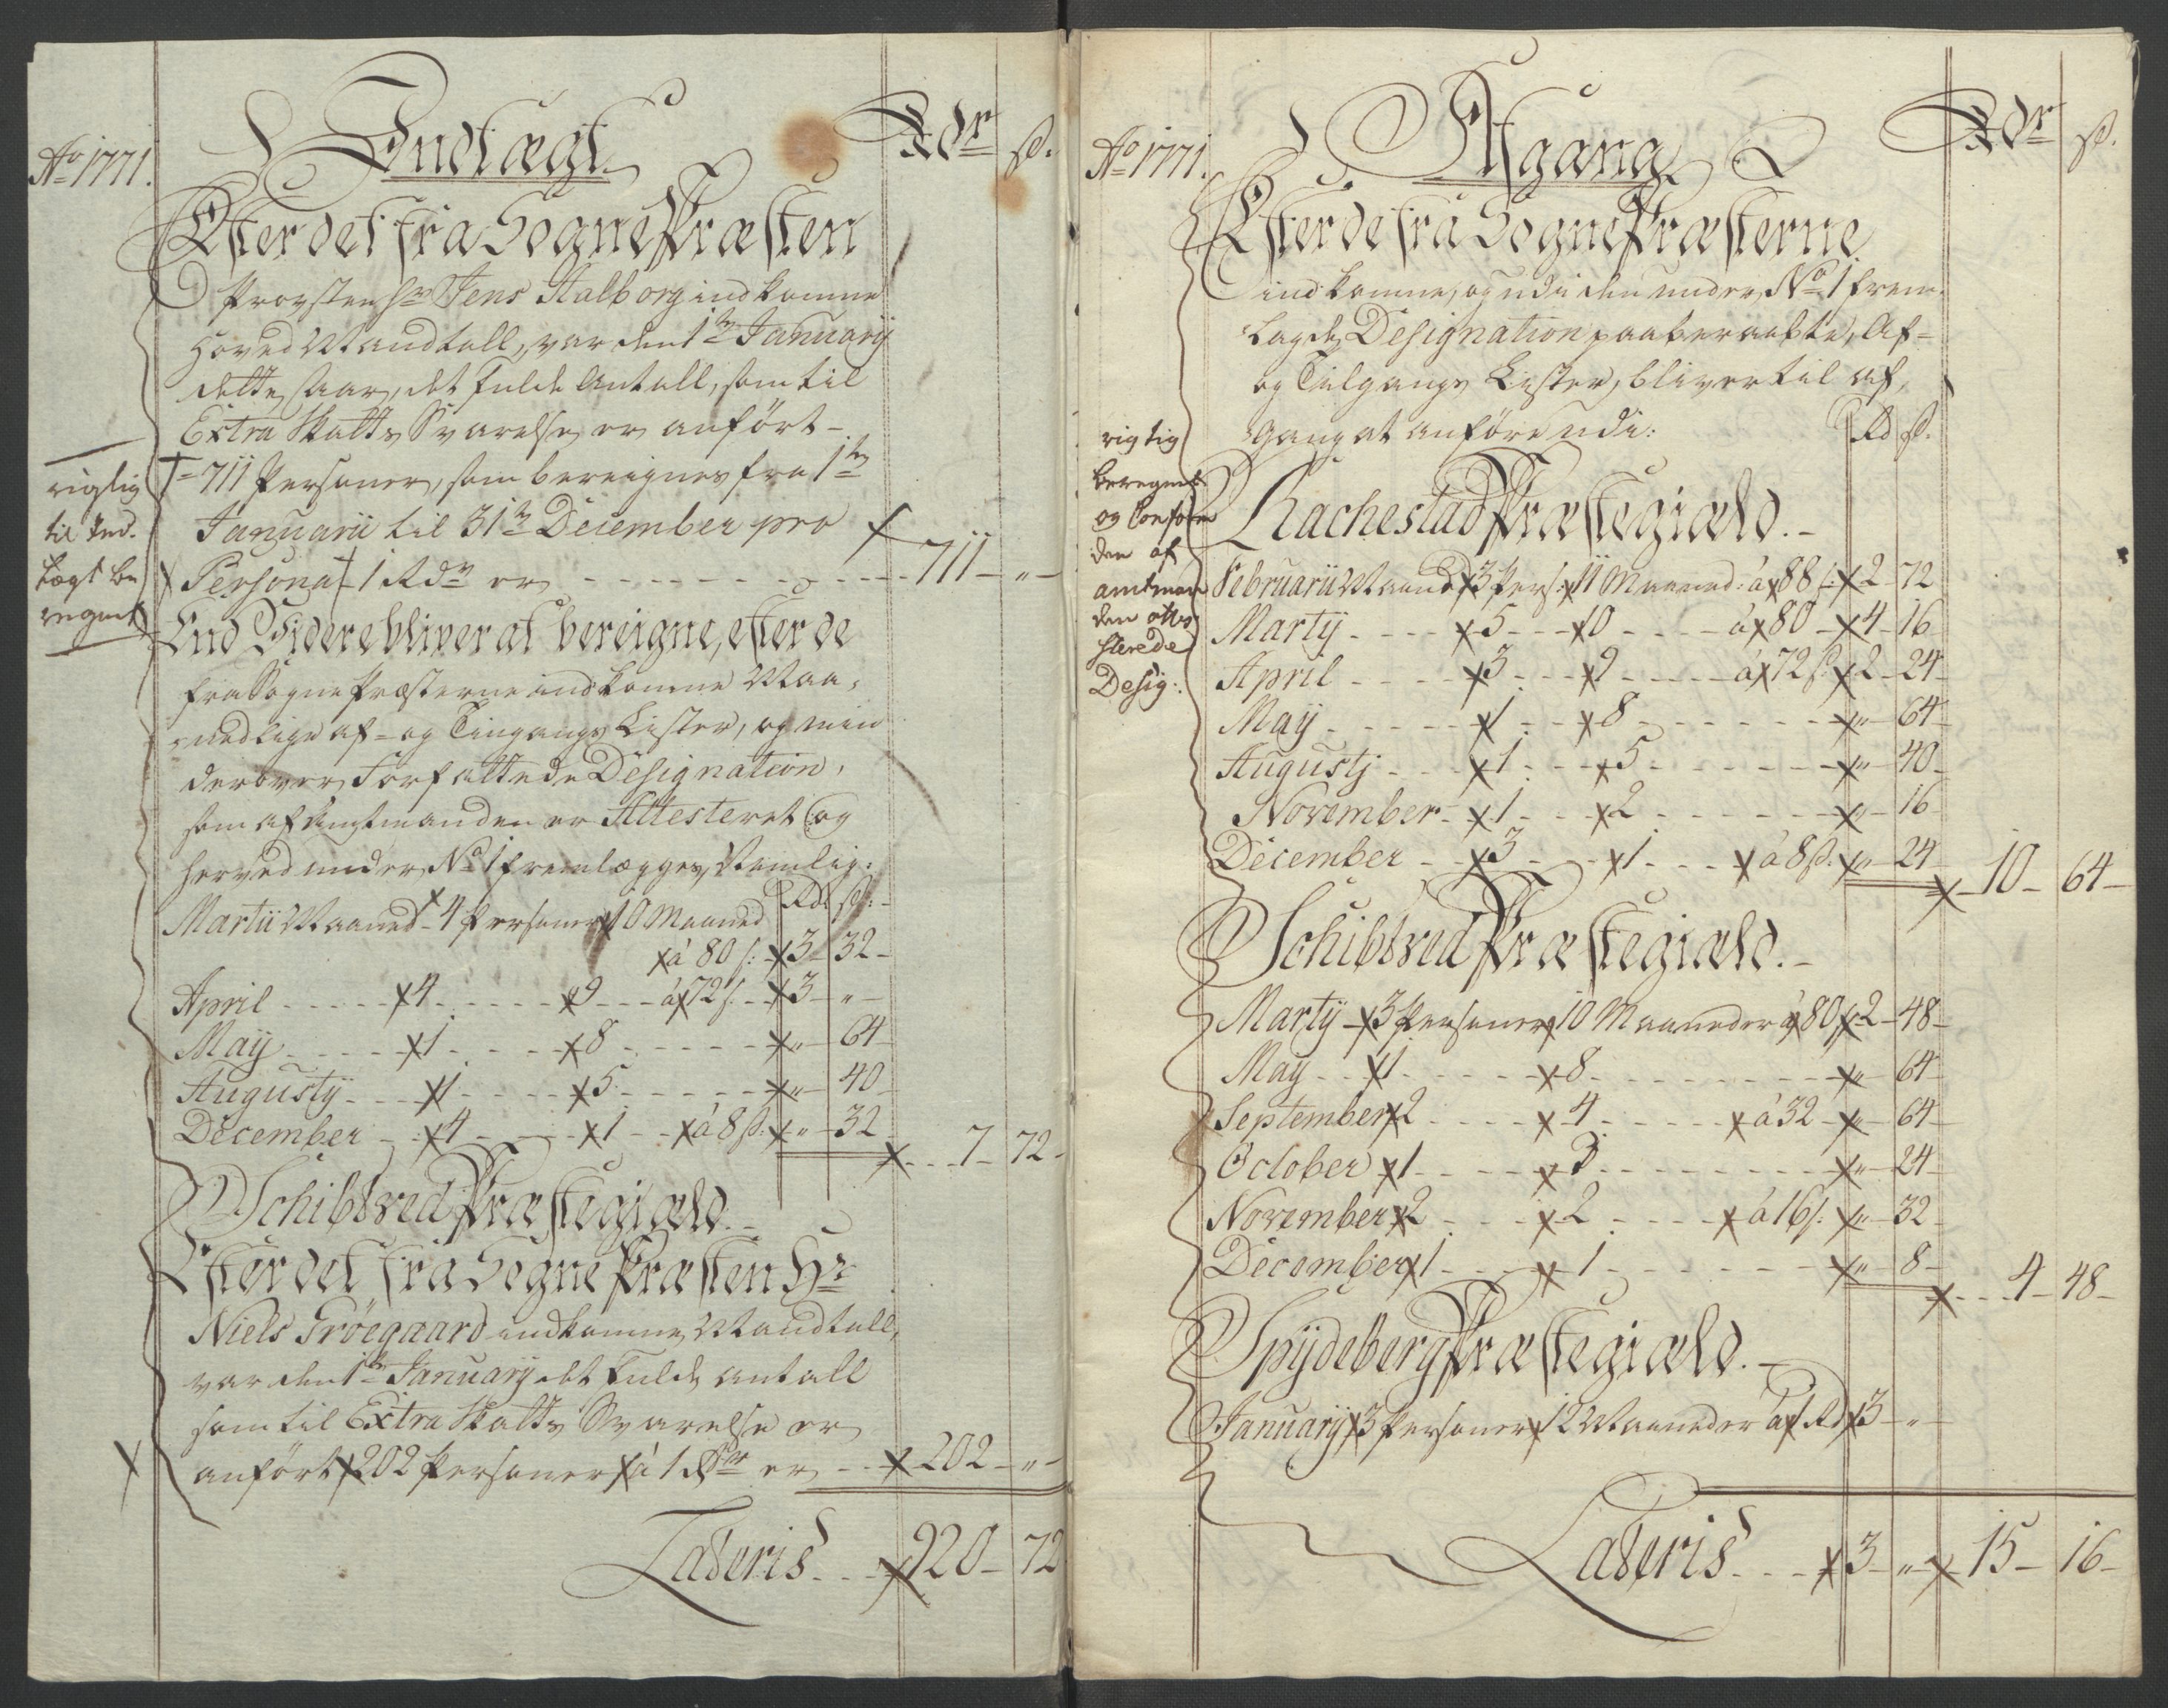 Ao 1771.
Indtægt
Rdr
ß.
Efter det fra Sogne Præsten
Provsten Hr Jens Aalborg indkomne
Hoved Mandtall, var den 1te January
dette Aar, det fulde Antall, som til
Extra Skatts Svarelse er anført -
711 Personer, som bereignes fra 1te
Januarii til 31te December pro
Persona 1 Rdr er - - - 711 - " -
rigtig
til Ind-
tægt be
regnet
End Videre bliver at bereigne, efter de
fra Sogne Præsterne indkomne Maa-
nedlige af- og Tilgangs Lister, og min
derover Forfattede Designation,
som af Amtmanden er Attesteret og
herved under No 1 fremlægges, Nemlig:
Rd: ß:
Martii Maaned - 4 Personer 10 Maaned
à 80 ß: - 3 - 32 -
April - - - 4 - - - 9 - - - à 72 ß. - 3 - " -
Maij - - - 1 - - - 8 - - - " - 64 -
Augustij - - - 1 - - - 5 - - - " - 40 -
December - - 4 - - - 1 - - à 8 ß: - " - 32
- - - 7 - 72 -
Schibtved Præstegiæld. -
Efter det fra Sogne Præsten Hr
Niels Grøegaard indkomne Mandtall,
var den 1te January det fulde Antall
som til Extra Skatts Svarelse er
anført 202 Personer à 1 Rdr er - - 202 - " -
Lateris - - - 920 - 72
Ao 1771.
Afgang
Rdr
ß.
Efter de fra Sogne Præsterne
indkomne, og udi den under No 1 frem-
lagde Designation paaberaabte, Af-
og Tilgangs Lister, bliver til af-
gang at anføre udi:
Rd ß.
rigtig
beregnet
og Conform
den af
amtman
den atte-
sterede
Desig:
Rachestad Præstegiæld. -
Februarii Maaned 3 Pers: 11 Maaned: à 88 ß: 2 - 72
Martij - - - 5 - - - 10 - - - à 80 - 4 - 16
April - - - 3 - - - 9 - - - à 72 ß: 2 - 24 -
Maij - - - 1 - - - 8 - - - " - 64 -
Augustj - - - 1 - - - 5 - - - " - 40 -
November - 1 - - - 2 - - - " - 16
December - - 3 - - - 1 - - - à 8 ß: " - 24 - 10 - 64 -
Schibtved Præstegiæld. -
Martij - 3 Personer 10 Maaneder à 80 ß 2 - 48 -
May - - 1 - - - 8 - - - " - 64 -
September 2 - - - 4 - - - à 32 - " - 64 -
October 1 - - - 3 - - - " - 24 -
November 2 - - - 2 - - - à 16 ß: " - 32 -
December 1 - - - 1 - - - " - 8 - - - - 4 - 48 -
Spydeberg Præstegiæld. -
Januarij 3 Personer 12 Maaneder à 1 Rd 3 - " -
Lateris - - - 3 - " - 15 - 16 -